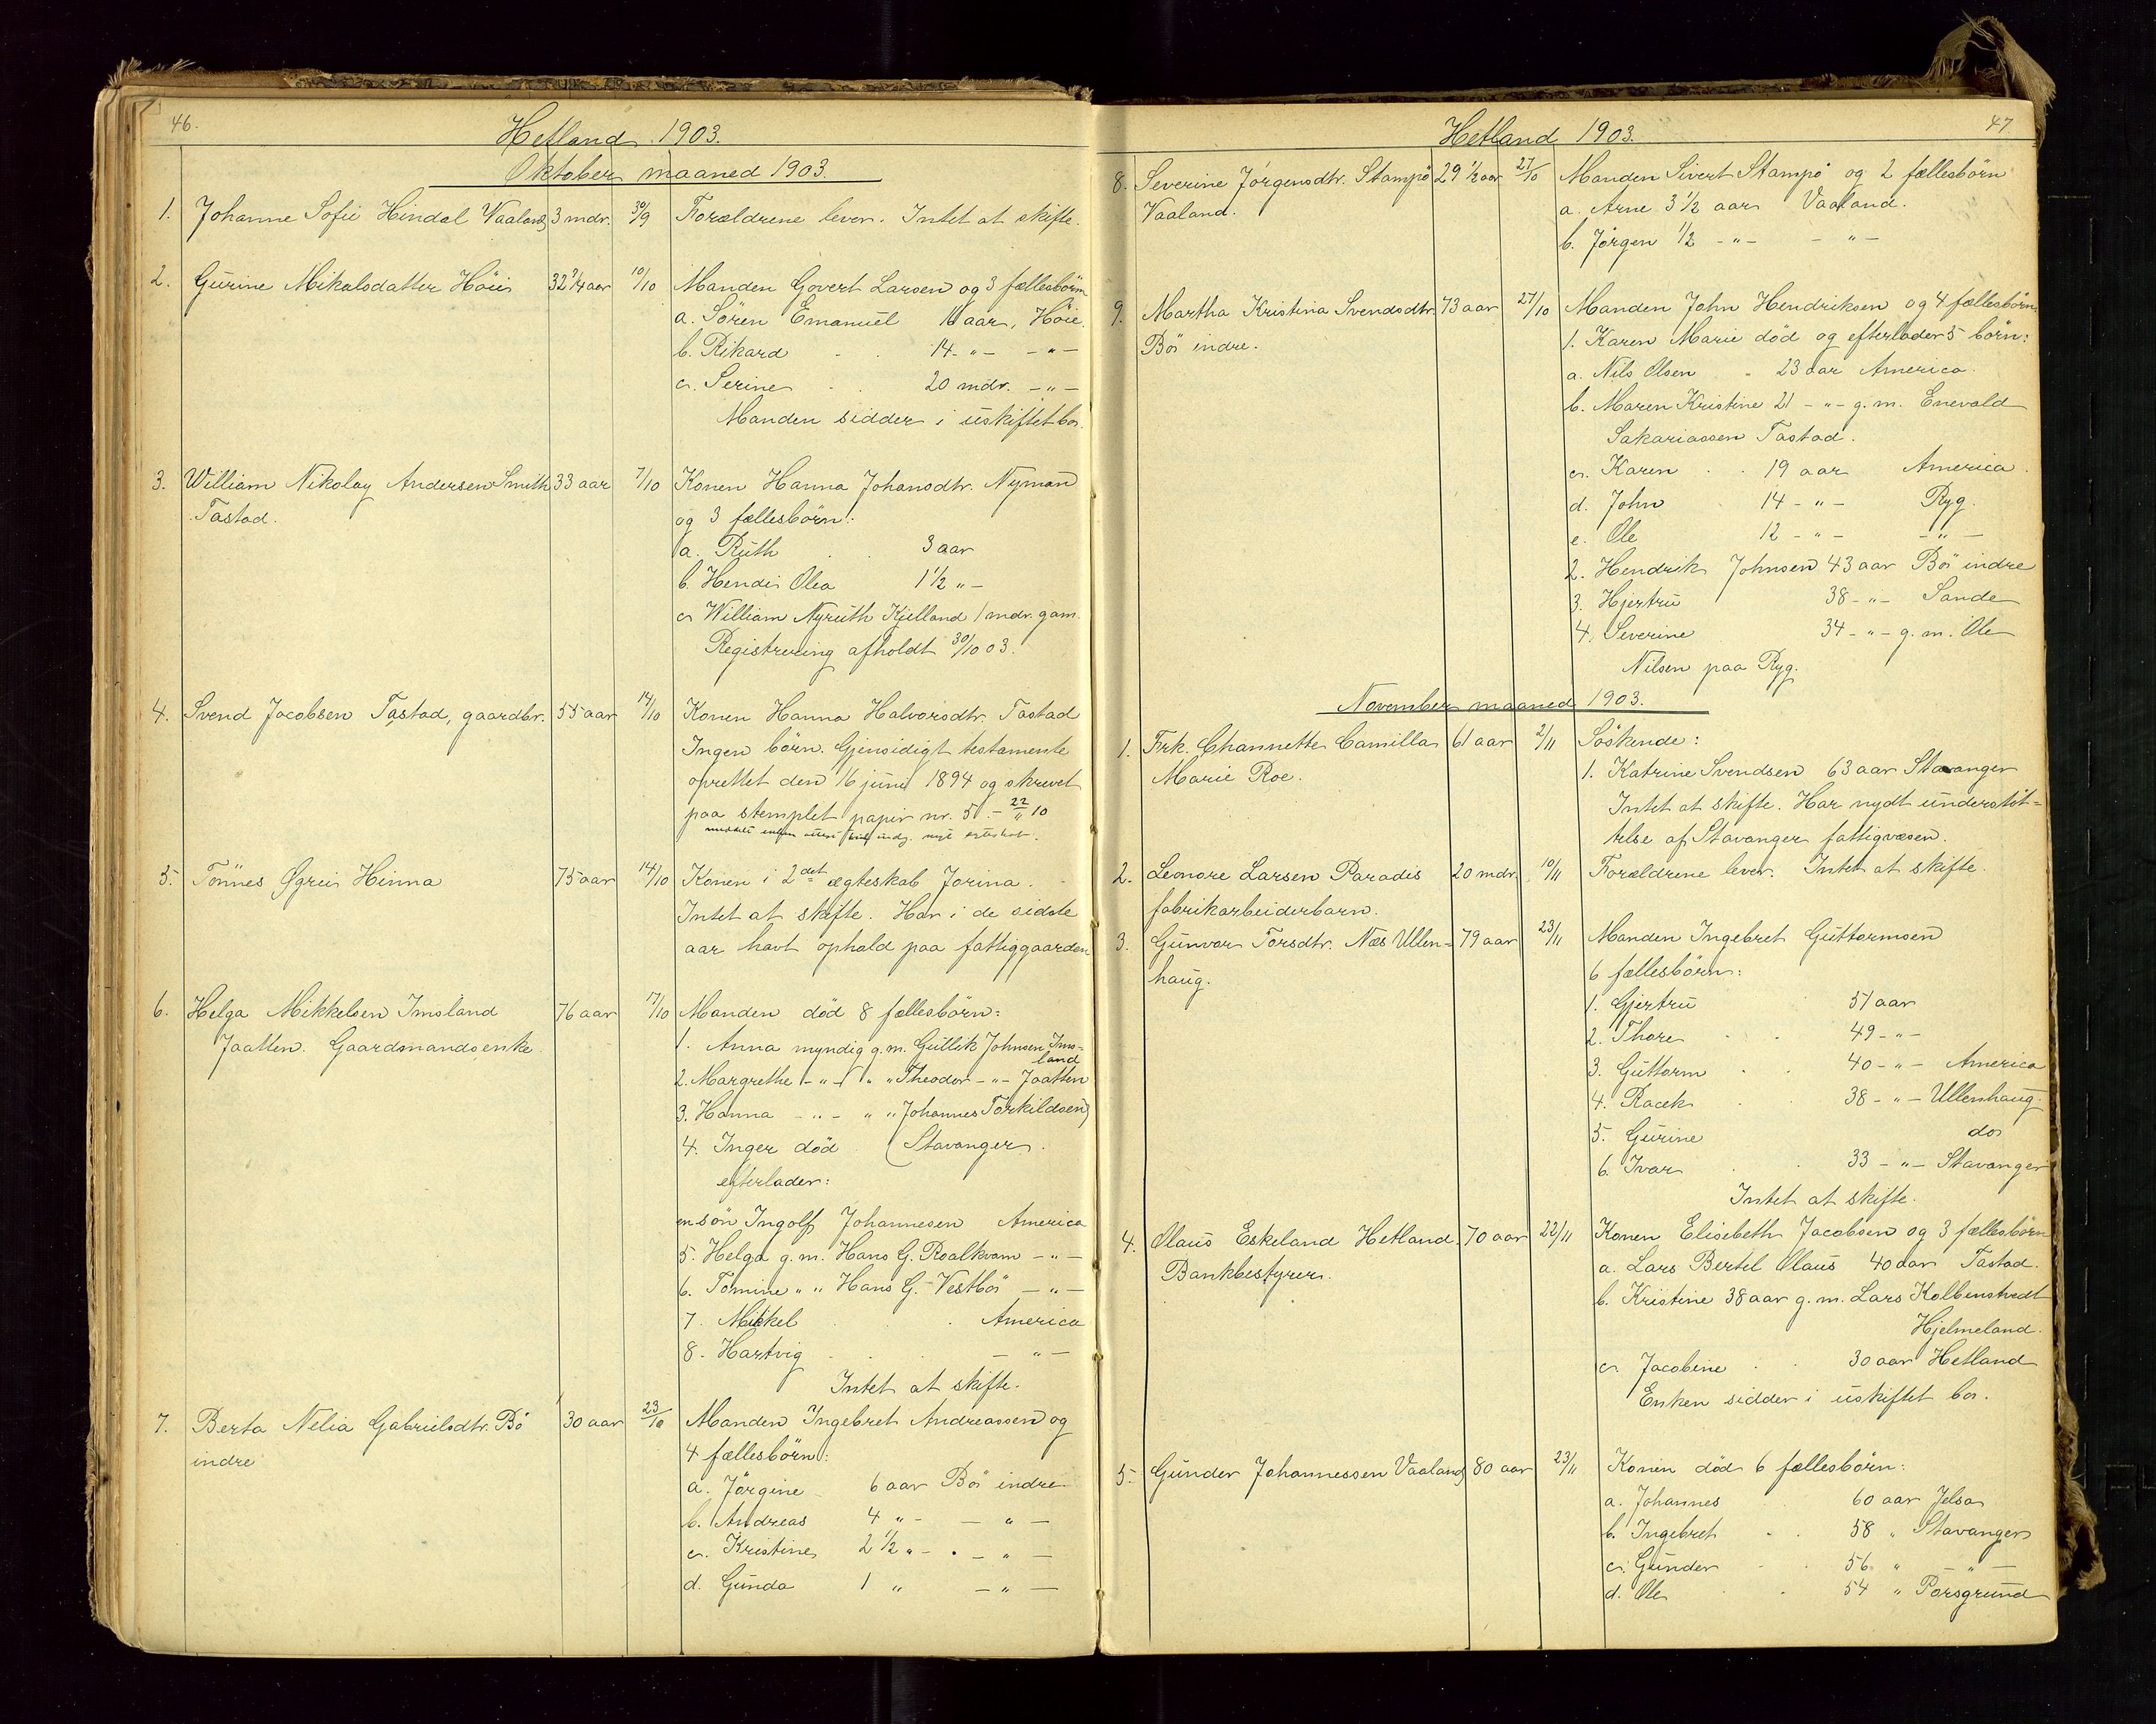 46.
Hetland 1903.
Oktober maaned 1903.
1. Johanne Sofie Hindal Vaaland 3 mdr. 30/9 Forældrene lever. Intet at skifte.
2. Gurine Mikalsdatter Höie 32 3/4 aar 10/10 Manden Govert Larsen og 3 fællesbörn
a. Sören Emanuel 16 aar, Höie.
b. Rikard 14 - " - - " -
c. Serine 20 mdr. - " -
Manden sidder i uskiftet bo.
3. William Nikolay Andersen Smith 33 aar 7/10 Konen Hanna Johansdtr. Nyman
Tastad. og 3 fællesbörn:
a. Ruth 3 aar
b. Hendi Olea 1 1/2 " -
c. William Nyruth Kjelland 1 mdr. gam.
Registrering afholdt 30/10 03.
4. Svend Jacobsen Tastad, gaardbr. 55 aar 14/10 Konen Hanna Halvorsdtr. Tastad
Ingen börn. Gjensidigt testamente
oprettet den 16 juni 1894 og skrevet
paa stemplet papir nr. 5. - 22/" 10
5. Tönnes Øgrei Hinna 75 aar 14/10 Konen i 2det ægteskab Jorina.
Intet at skifte. Har i de sidste
aar havt ophold paa fattiggaarden
6. Helga Mikkelsen Imsland 76 aar 17/10 Manden död 8 fællesbörn:
Jaatten. Gaardmandsenke. 1. Anna myndig g.m. Gullik Johnsen Ims-
land
2. Margrethe - " - " " Theodor - " - Jaatten
3. Hanna - " - " " Johannes Torkildsen
4. Inger död (Stavanger.
efterlader:
en sön Ingolf Johannesen America
5. Helga g.m. Hans G. Roalkvam - " -
6. Tomine " " Hans G. Vestbö - " -
7. Mikkel America
8. Hartvig - " -
Intet at skifte.
7. Berta Nelia Gabrielsdtr. Bö 30 aar 23/10 Manden Ingebret Andreassen og
indre 4 fællesbörn:
a. Jörgine 6 aar Bö indre
b. Andreas 4 " - - " -
c. Kristine 2 1/2 " - - " -
d. Gunda 1 " - " -
47
Hetland 1903.
8. Severine Jörgensdtr. Stampö 29 1/2 aar 27/10 Manden Sivert Stampö og 2 fællesbörn
Vaaland. a. Arne 3 1/2 aar Vaaland.
b. Jörgen 1/2 - " - - " -
9. Martha Kristina Svendsdtr. 73 aar 27/10 Manden John Hendriksen og 4 fællesbörn.
Bö indre. 1. Karen Marie död og efterlader 5 börn:
a. Nils Olsen 23 aar America.
b. Maren Kristine 21 - " - g.m. Enevald
Sakariassen Tastad.
c. Karen 19 aar America.
d. John 14 - " - Ryg.
e. Ole 12 - " - - " -
2. Hendrik Johnsen 43 aar Bö indre
3. Hjertru 38 - " - Sande
4. Severine 34 - " - g.m. Ole
Nilsen paa Ryg.
November maaned 1903.
1. Frk. Channette Camilla 61 aar 2/11 Söskende:
Marie Roe. 1. Katrine Svendsen 63 aar Stavanger
Intet at skifte. Har nydt understöt-
telse af Stavanger fattigvæsen.
2. Leonore Larsen Paradis 20 mdr. 10/11 Forældrene lever. Intet at skifte.
fabrikarbeiderbarn.
3. Gunvor Torsdtr. Næs Ullen- 79 aar 23/11 Manden Ingebret Guttormsen
haug. 6 fællesbörn:
1. Gjertru 51 aar
2. Thore 49 - " -
3. Guttorm 40 - " - America
4. Racek 38 - " - Ullenhaug.
5. Gurine do
6. Ivar 33 - " - Stavanger
Intet at skifte.
4. Olaus Eskeland Hetland. 70 aar 22/11 Konen Elisebeth Jacobsen og 3 fællesbörn
Bankbestyrer. a. Lars Bertel Olaus 40 aar Tastad.
b. Kristine 38 aar g.m. Lars Kolbenstvedt
Hjelmeland.
c. Jacobine 30 aar Hetland
Enken sidder i uskiftet bo.
5. Gunder Johannessen Vaaland 80 aar 23/11 Konen död 6 fællesbörn:
a. Johannes 60 aar Jelsa
b. Ingebret 58 " Stavanger
c. Gunder 56 " - " -
d. Ole 54 " Porsgrund